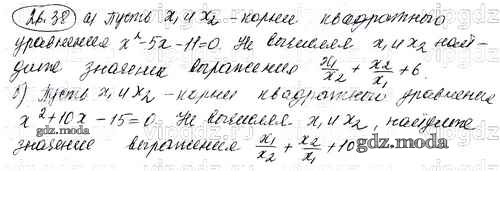 26.38 а) Пусть x₁ и x₂ - корни квадратного
уравнения x²-5x-11=0. Не вычисляя x₁ и x₂ най-
дите значение выражения x₁/x₂ + x₂/x₁ + 6.
б) Пусть x₁ и x₂ - корни квадратного уравнения
x²+10x-15=0. Не вычисляя x₁ и x₂, найдите
значение выражения x₁/x₂ + x₂/x₁ + 10
gdz.moda
gdz.moda